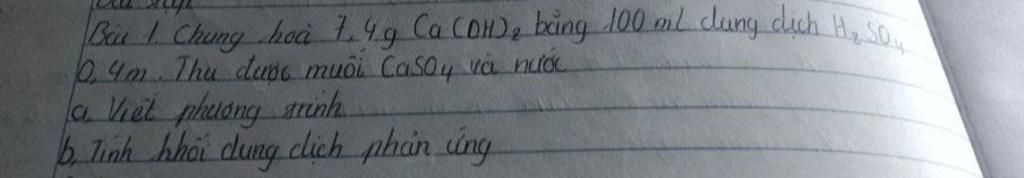 Bài 1. Chung hoà 7,4g Ca(OH)₂ bằng 100 ml dung dịch H₂SO₄
0,4m. Thu được muối CaSO₄ và nước
a. Viết phương trình
b. Tính khối dung dịch phản ứng